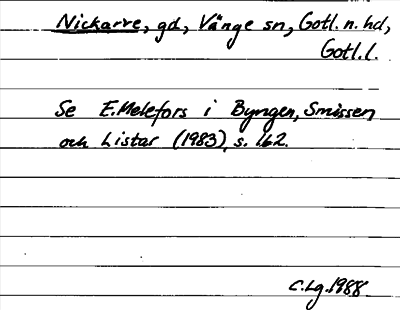 Nickarve, gd, Vänge sn, Gotl. n. hd,
Gotl. l.
Se E. Melefors i Byngen, Smissen
och Listar (1983), s. 162.
C. Lg. 1988